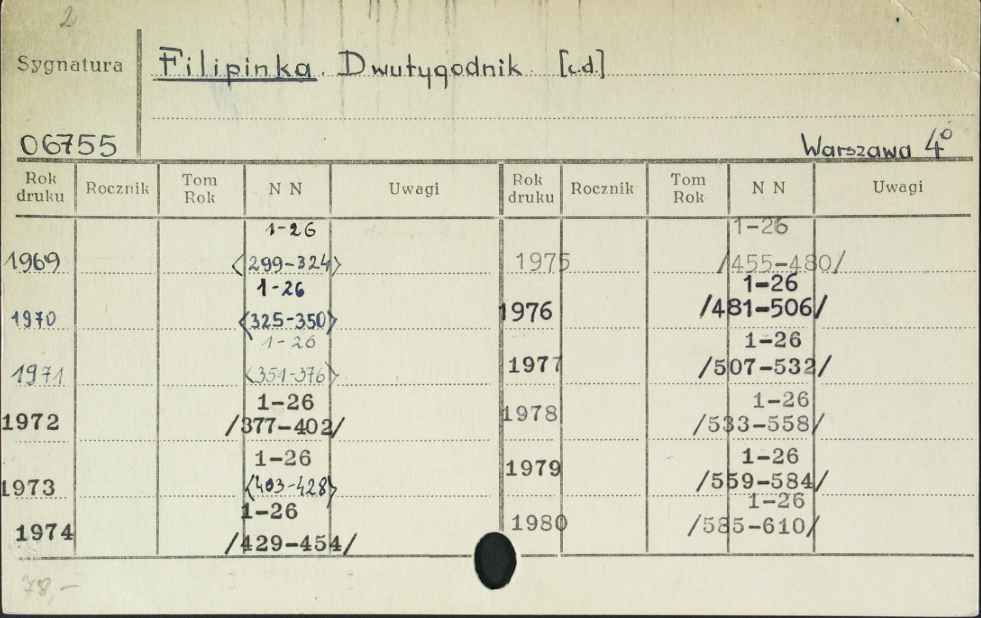 2
Sygnatura
Filipinka. Dwutygodnik [c.d.]
06755
Warszawa 4°
Rok druku Rocznik Tom Rok N N Uwagi Rok druku Rocznik Tom Rok N N Uwagi
1-26
1969 <299-324>
1-26
1970 <325-350>
1-26
1971 <351-376>
1-26
1972 /377-402/
1-26
1973 <403-428>
1-26
1974 /429-454/
1-26
1975 /455-480/
1-26
1976 /481-506/
1-26
1977 /507-532/
1-26
1978 /533-558/
1-26
1979 /559-584/
1-26
1980 /585-610/
78,-